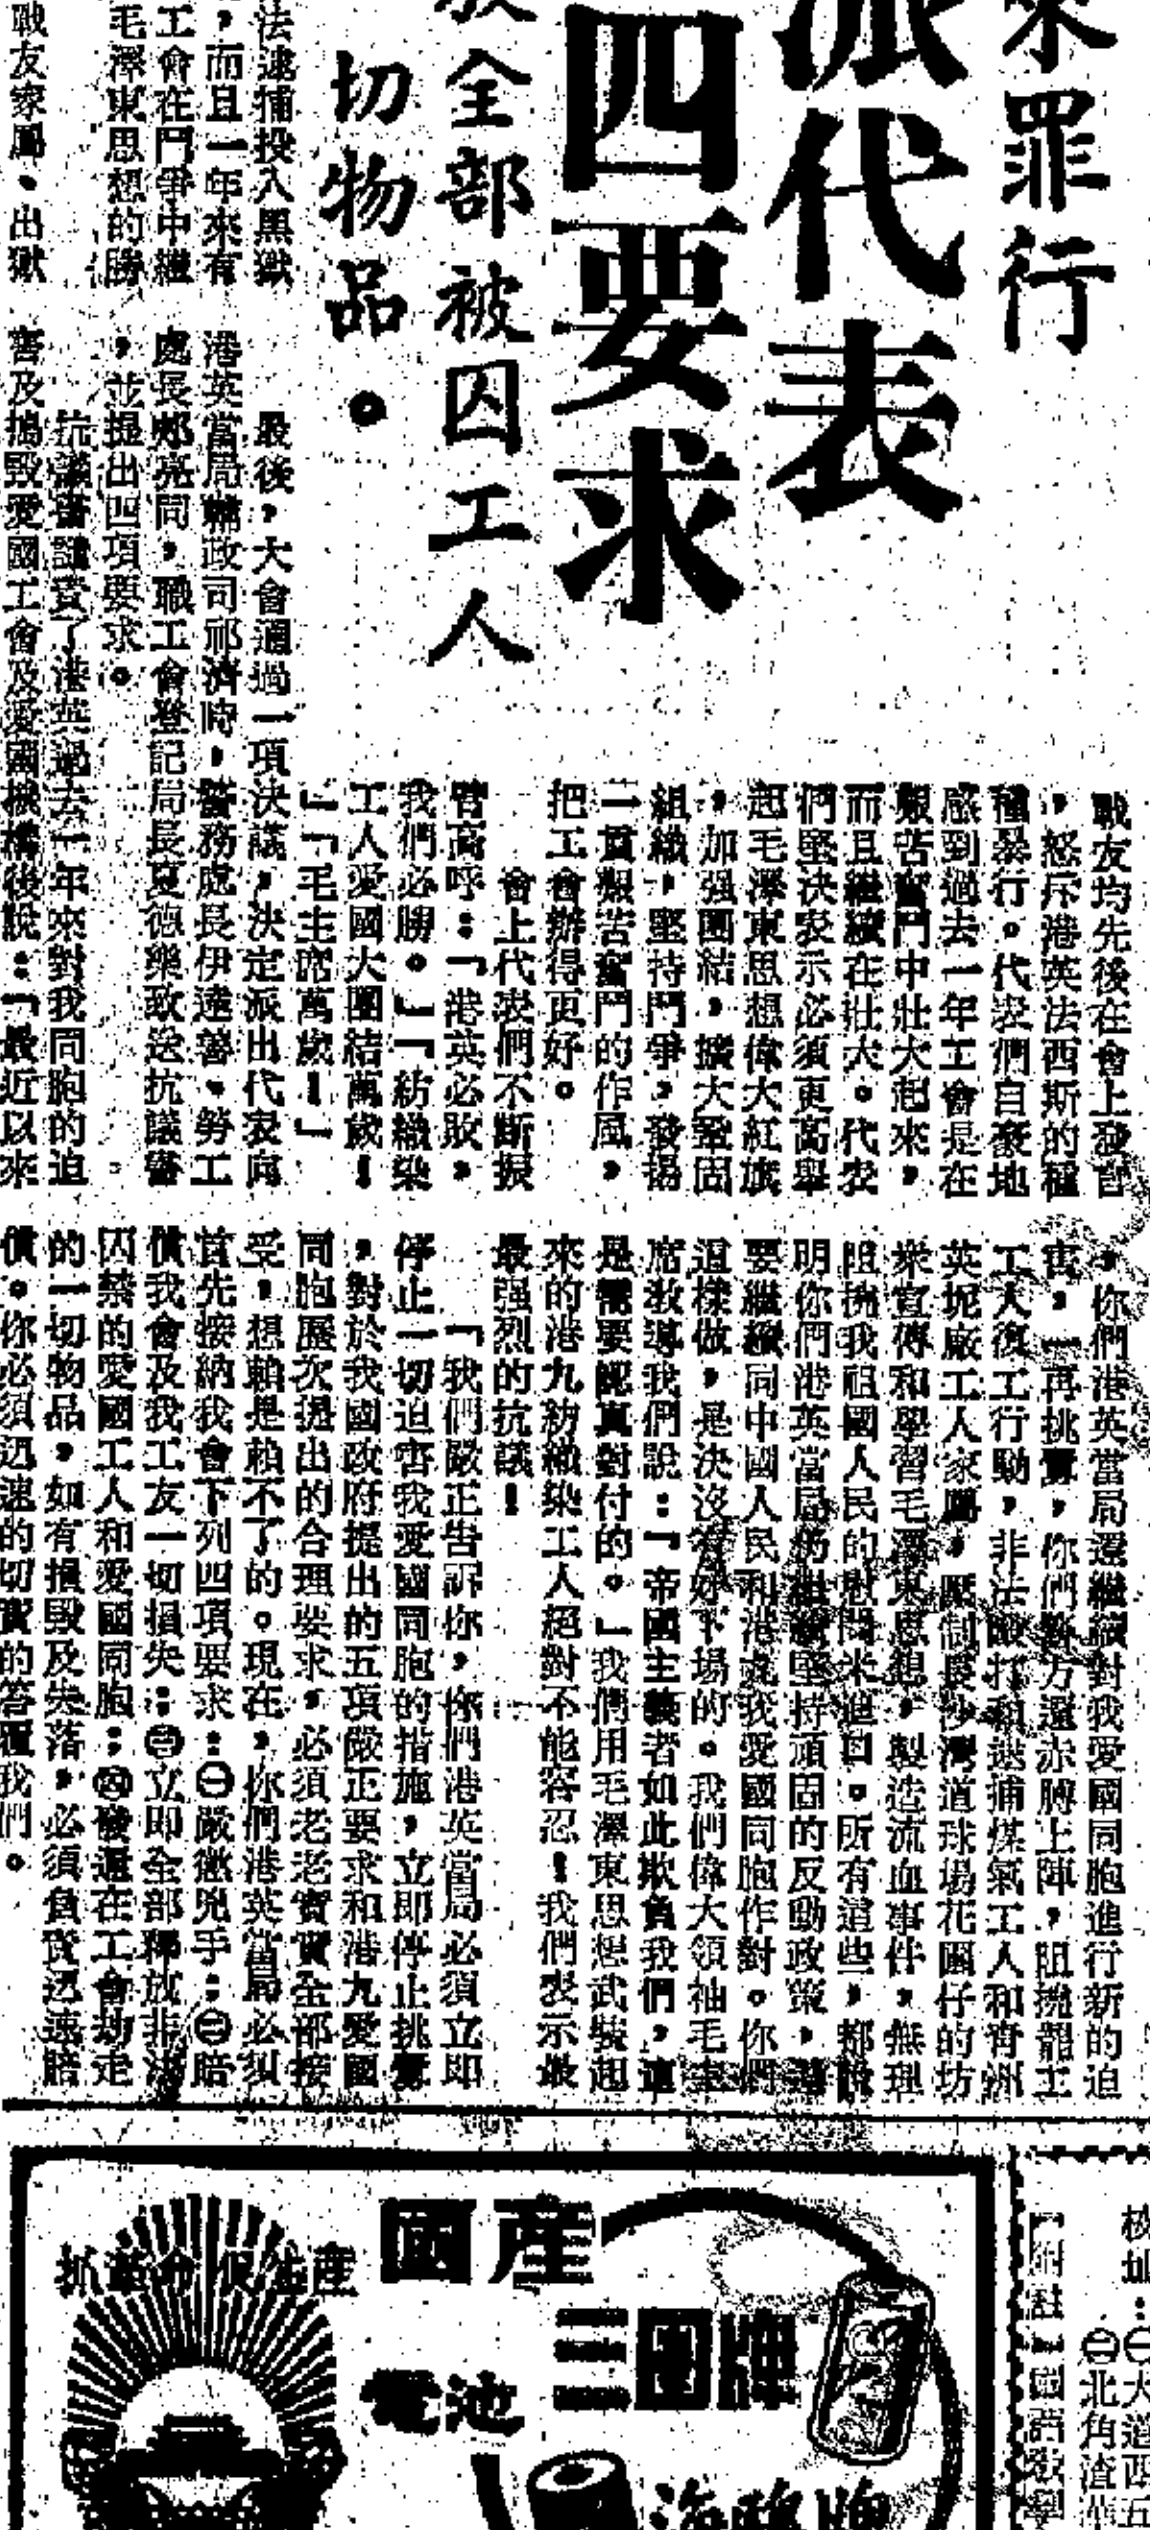 罪行
派代表
四要求
全部被囚工人
切物品。
法逮捕投入黑獄
，而且一年來有
工會在鬥爭中繼
毛澤東思想的勝
戰友家屬、出獄
戰友均先後在會上發言
，怒斥港英法西斯的種
種暴行。代表們自豪地
感到過去一年工會是在
艱苦奮鬥中壯大起來，
而且繼續在壯大。代表
們堅決表示必須更高舉
起毛澤東思想偉大紅旗
，加强團結，擴大鞏固
組織，堅持鬥爭，發揚
一貫艱苦奮鬥的作風，
把工會辦得更好。
會上代表們不斷振
臂高呼：「港英必敗，
我們必勝。」「紡織染
工人愛國大團結萬歲！
」「毛主席萬歲！」
最後，大會通過一項決議，決定派出代表向
港英當局輔政司祁濟時，警務處長伊達善、勞工
處長鄔亮同，職工會登記局長夏德樂致送抗議書
，並提出四項要求。
抗議書譴責了港英過去一年來對我同胞的迫
害及搗毀愛國工會及愛國機構後說：「最近以來
，你們港英當局還繼續對我愛國同胞進行新的迫
害，一再挑釁，你們警方還赤膊上陣，阻撓龍工
工人復工行動，非法毆打和逮捕煤氣工人和青州
英坭廠工人家屬，壓制長沙灣道球場花園仔的坊
衆宣傳和學習毛澤東思想，製造流血事件，無理
阻撓我祖國人民的慰問米進口。所有這些，都說
明你們港英當局仍繼續堅持頑固的反動政策，還
要繼續同中國人民和港九我愛國同胞作對。你們
這樣做，是決沒有好下場的。我們偉大領袖毛主
席教導我們說：『帝國主義者如此欺負我們，這
是需要認真對付的。』我們用毛澤東思想武裝起
來的港九紡織染工人絕對不能容忍！我們表示最
最强烈的抗議！
「我們嚴正告訴你，你們港英當局必須立即
停止一切迫害我愛國同胞的措施，立即停止挑釁
，對於我國政府提出的五項嚴正要求和港九愛國
同胞歷次提出的合理要求，必須老老實實全部接
受，想賴是賴不了的。現在，你們港英當局必須
首先接納我會下列四項要求：㊀嚴懲兇手；㊁賠
償我會及我工友一切損失；㊂立即全部釋放非法
囚禁的愛國工人和愛國同胞；㊃發還在工會劫走
的一切物品，如有損毀及失落，必須負責迅速賠
償。你必須迅速的切實的答覆我們。
抓革命 促生產
國産
三圈牌
電池
㊀大道西五
㊁北角渣華